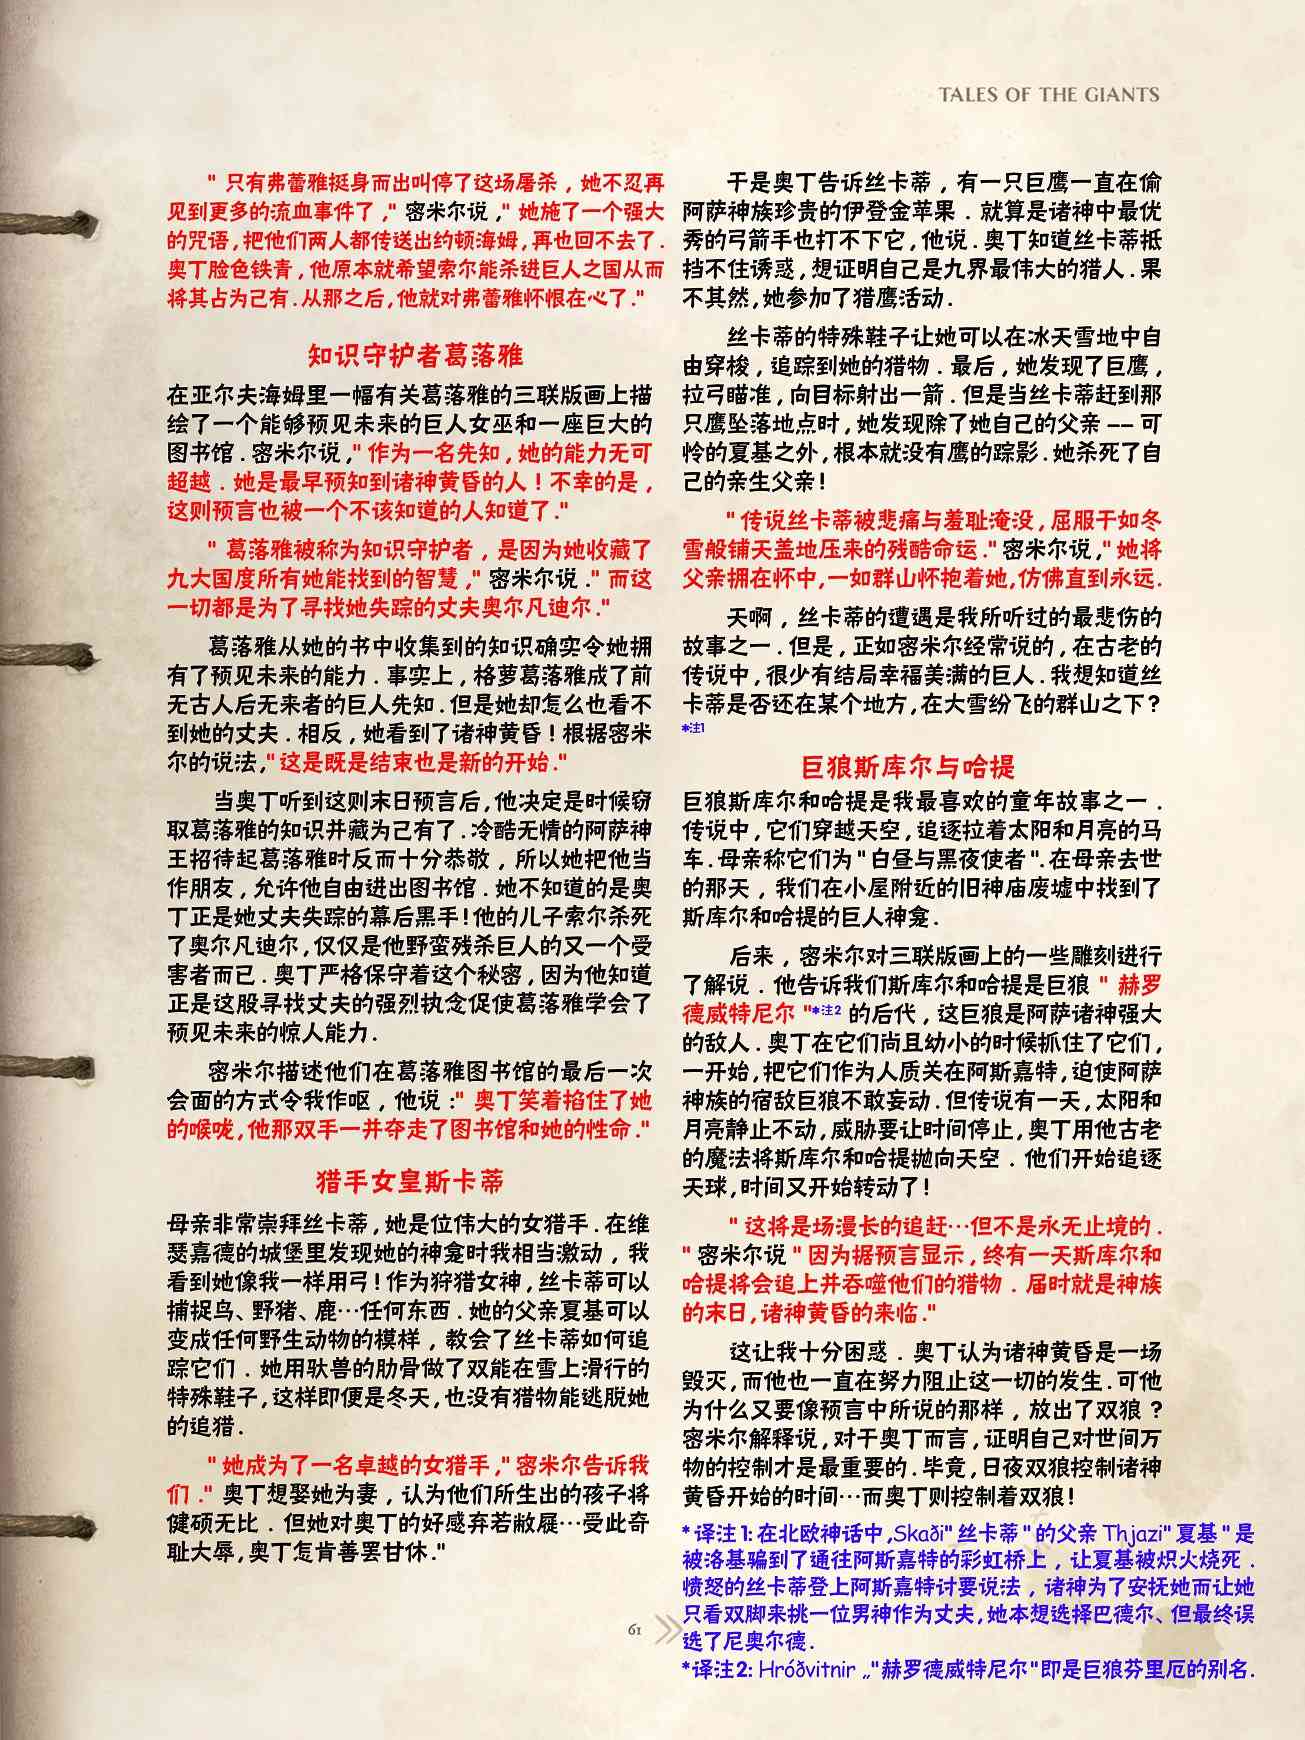 TALES OF THE GIANTS
"只有弗蕾雅挺身而出叫停了这场屠杀，她不忍再
见到更多的流血事件了,"密米尔说,"她施了一个强大
的咒语,把他们两人都传送出约顿海姆,再也回不去了.
奥丁脸色铁青,他原本就希望索尔能杀进巨人之国从而
将其占为己有.从那之后,他就对弗蕾雅怀恨在心了."
知识守护者葛落雅
在亚尔夫海姆里一幅有关葛落雅的三联版画上描
绘了一个能够预见未来的巨人女巫和一座巨大的
图书馆.密米尔说,"作为一名先知,她的能力无可
超越.她是最早预知到诸神黄昏的人!不幸的是,
这则预言也被一个不该知道的人知道了."
"葛落雅被称为知识守护者,是因为她收藏了
九大国度所有她能找到的智慧,"密米尔说."而这
一切都是为了寻找她失踪的丈夫奥尔凡迪尔."
葛落雅从她的书中收集到的知识确实令她拥
有了预见未来的能力.事实上,格萝葛落雅成了前
无古人后无来者的巨人先知.但是她却怎么也看不
到她的丈夫.相反,她看到了诸神黄昏!根据密米
尔的说法,"这是既是结束也是新的开始."
当奥丁听到这则末日预言后,他决定是时候窃
取葛落雅的知识并藏为己有了.冷酷无情的阿萨神
王招待起葛落雅时反而十分恭敬,所以她把他当
作朋友,允许他自由进出图书馆.她不知道的是奥
丁正是她丈夫失踪的幕后黑手!他的儿子索尔杀死
了奥尔凡迪尔,仅仅是他野蛮残杀巨人的又一个受
害者而已.奥丁严格保守着这个秘密,因为他知道
正是这股寻找丈夫的强烈执念促使葛落雅学会了
预见未来的惊人能力.
密米尔描述他们在葛落雅图书馆的最后一次
会面的方式令我作呕,他说:"奥丁笑着掐住了她
的喉咙,他那双手一并夺走了图书馆和她的性命."
猎手女皇斯卡蒂
母亲非常崇拜丝卡蒂,她是位伟大的女猎手.在维
瑟嘉德的城堡里发现她的神龛时我相当激动,我
看到她像我一样用弓!作为狩猎女神,丝卡蒂可以
捕捉鸟、野猪、鹿…任何东西.她的父亲夏基可以
变成任何野生动物的模样,教会了丝卡蒂如何追
踪它们.她用驮兽的肋骨做了双能在雪上滑行的
特殊鞋子,这样即便是冬天,也没有猎物能逃脱她
的追猎.
"她成为了一名卓越的女猎手,"密米尔告诉我
们."奥丁想娶她为妻,认为他们所生出的孩子将
健硕无比.但她对奥丁的好感弃若敝屣…受此奇
耻大辱,奥丁怎肯善罢甘休."
于是奥丁告诉丝卡蒂,有一只巨鹰一直在偷
阿萨神族珍贵的伊登金苹果.就算是诸神中最优
秀的弓箭手也打不下它,他说.奥丁知道丝卡蒂抵
挡不住诱惑,想证明自己是九界最伟大的猎人.果
不其然,她参加了猎鹰活动.
丝卡蒂的特殊鞋子让她可以在冰天雪地中自
由穿梭,追踪到她的猎物.最后,她发现了巨鹰,
拉弓瞄准,向目标射出一箭.但是当丝卡蒂赶到那
只鹰坠落地点时,她发现除了她自己的父亲——可
怜的夏基之外,根本就没有鹰的踪影.她杀死了自
己的亲生父亲!
"传说丝卡蒂被悲痛与羞耻淹没,屈服于如冬
雪般铺天盖地压来的残酷命运."密米尔说,"她将
父亲拥在怀中,一如群山怀抱着她,仿佛直到永远.
天啊,丝卡蒂的遭遇是我所听过的最悲伤的
故事之一.但是,正如密米尔经常说的,在古老的
传说中,很少有结局幸福美满的巨人.我想知道丝
卡蒂是否还在某个地方,在大雪纷飞的群山之下?
*注1
巨狼斯库尔与哈提
巨狼斯库尔和哈提是我最喜欢的童年故事之一.
传说中,它们穿越天空,追逐拉着太阳和月亮的马
车.母亲称它们为"白昼与黑夜使者".在母亲去世
的那天,我们在小屋附近的旧神庙废墟中找到了
斯库尔和哈提的巨人神龛.
后来,密米尔对三联版画上的一些雕刻进行
了解说.他告诉我们斯库尔和哈提是巨狼"赫罗
德威特尼尔"*注2 的后代,这巨狼是阿萨诸神强大
的敌人.奥丁在它们尚且幼小的时候抓住了它们,
一开始,把它们作为人质关在阿斯嘉特,迫使阿萨
神族的宿敌巨狼不敢妄动.但传说有一天,太阳和
月亮静止不动,威胁要让时间停止,奥丁用他古老
的魔法将斯库尔和哈提抛向天空.他们开始追逐
天球,时间又开始转动了!
"这将是场漫长的追赶…但不是永无止境的.
"密米尔说"因为据预言显示,终有一天斯库尔和
哈提将会追上并吞噬他们的猎物.届时就是神族
的末日,诸神黄昏的来临."
这让我十分困惑.奥丁认为诸神黄昏是一场
毁灭,而他也一直在努力阻止这一切的发生.可他
为什么又要像预言中所说的那样,放出了双狼?
密米尔解释说,对于奥丁而言,证明自己对世间万
物的控制才是最重要的.毕竟,日夜双狼控制诸神
黄昏开始的时间…而奥丁则控制着双狼!
*译注1:在北欧神话中,Skaði"丝卡蒂"的父亲Thjazi"夏基"是
被洛基骗到了通往阿斯嘉特的彩虹桥上,让夏基被炽火烧死.
愤怒的丝卡蒂登上阿斯嘉特讨要说法,诸神为了安抚她而让她
只看双脚来挑一位男神作为丈夫,她本想选择巴德尔、但最终误
选了尼奥尔德.
*译注2: Hróðvitnir ,,"赫罗德威特尼尔"即是巨狼芬里厄的别名.
61